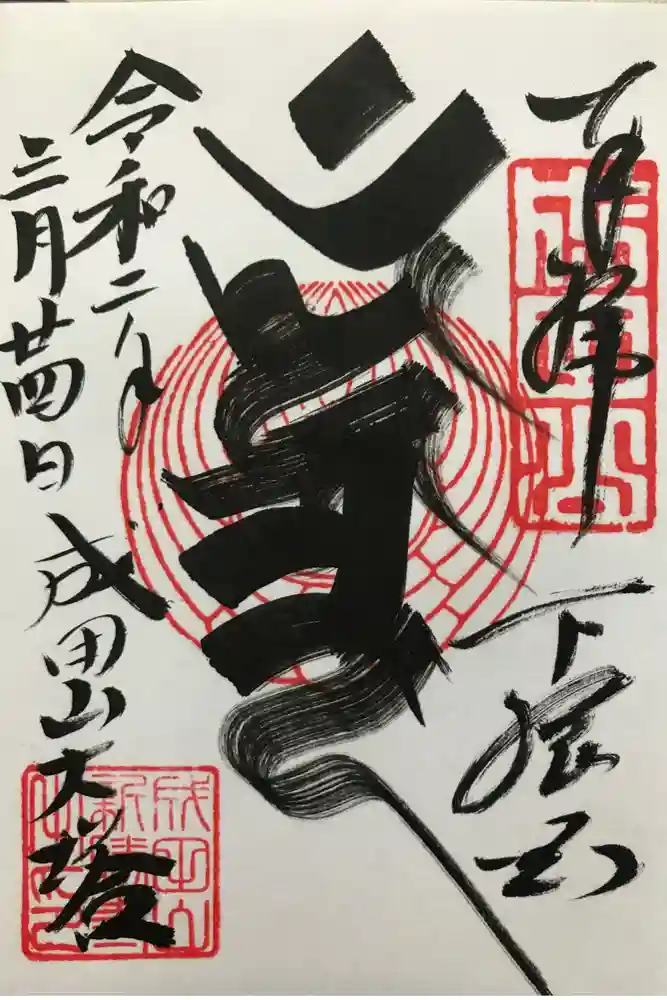 奉拝
下総国
令和二年
三月廿四日
成田山大塔
成田山
成田山
新勝寺